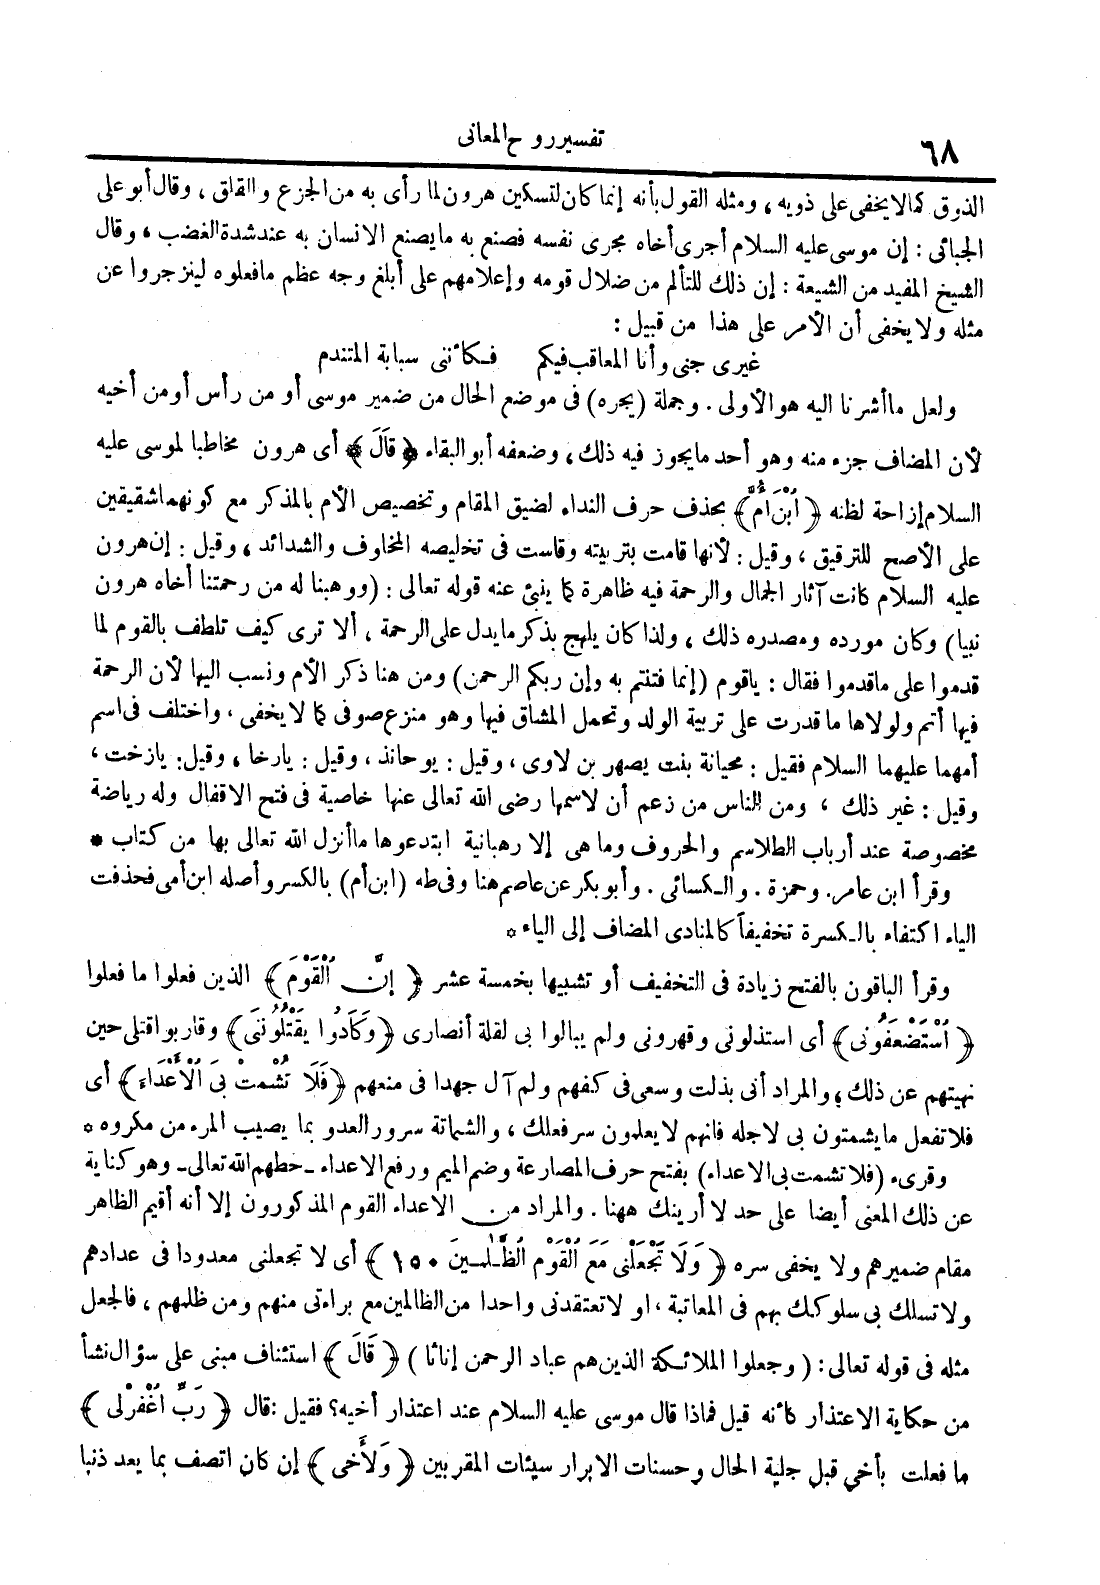 ٦٨
تفسير روح المعانى
الذوق كما لا يخفى على ذويه، ومثله القول بأنه إنما كان لتسكين هرون لما رأى به من الجزع والقلق، وقال أبو على
الجبائى : إن موسى عليه السلام أجرى أخاه مجرى نفسه فصنع به ما يصنع الانسان به عند شدة الغضب، وقال
الشيخ المفيد من الشيعة : إن ذلك للتألم من ضلال قومه وإعلامهم على أبلغ وجه عظم مافعلوه لينزجروا عن
مثله ولا يخفى أن الأمر على هذا من قبيل :
غيرى جنى وأنا المعاقب فيكم فكأننى سبابة المتندم
ولعل ما أشرنا اليه هو الأولى. وجملة (يجره) فى موضع الحال من ضمير موسى أو من رأس أو من أخيه
لأن المضاف جزء منه وهو أحد ما يجوز فيه ذلك، وضعفه أبو البقاء ﴿ قَالَ ﴾ أى هرون مخاطبا لموسى عليه
السلام إزاحة لظنه ﴿ ٱبْنَ أُمَّ ﴾ بحذف حرف النداء لضيق المقام وتخصيص الأم بالمذكر مع كونهما شقيقين
على الأصح للترقيق، وقيل : لأنها قامت بتربيته وقاست فى تخليصه المخاوف والشدائد، وقيل : إن هرون
عليه السلام كانت آثار الجمال والرحمة فيه ظاهرة كما ينبئ عنه قوله تعالى : (ووهبنا له من رحمتنا أخاه هرون
نبيا) وكان مورده ومصدره ذلك، ولذا كان يلهج بذكر ما يدل على الرحمة، ألا ترى كيف تلطف بالقوم لما
قدموا على ماقدموا فقال : ياقوم (إنما فتنتم به وإن ربكم الرحمن) ومن هنا ذكر الأم ونسب اليها لأن الرحمة
فيها أتم ولولاها ما قدرت على تربية الولد وتحمل المشاق فيها وهو منزع صوفى كما لا يخفى، واختلف فى اسم
أمهما عليهما السلام فقيل : محيانة بنت يصهر بن لاوى، وقيل : يوحانذ، وقيل : يارخا، وقيل: يازخت،
وقيل : غير ذلك، ومن الناس من زعم أن لاسمها رضى الله تعالى عنها خاصية فى فتح الاقفال وله رياضة
مخصوصة عند أرباب الطلاسم والحروف وما هى إلا رهبانية ابتدعوها ما أنزل الله تعالى بها من كتاب *
وقرأ ابن عامر. وحمزة. والكسائى. وأبو بكر عن عاصم هنا وفى طه (ابن أم) بالكسر وأصله ابن أمى فحذفت
الياء اكتفاء بالكسرة تخفيفاً كالمنادى المضاف إلى الياء *
وقرأ الباقون بالفتح زيادة فى التخفيف أو تشبيها بخمسة عشر ﴿ إنَّ ٱلْقَوْمَ ﴾ الذين فعلوا ما فعلوا
﴿ ٱسْتَضْعَفُونى ﴾ أى استذلونى وقهرونى ولم يبالوا بى لقلة أنصارى ﴿ وَكَادُوا يَقْتُلُونَنى ﴾ وقاربوا قتلى حين
نهيتهم عن ذلك، والمراد أنى بذلت وسعى فى كفهم ولم آل جهدا فى منعهم ﴿ فَلَا تُشْمتْ بىَ ٱلْأَعْدَاءَ ﴾ أى
فلا تفعل ما يشمتون بى لاجله فانهم لا يعلمون سر فعلك، والشماتة سرور العدو بما يصيب المرء من مكروه *
وقرىء (فلا تشمت بى الاعداء) بفتح حرف المضارعة وضم الميم ورفع الاعداء ـ حطهم الله تعالى ـ وهو كناية
عن ذلك المعنى أيضا على حد لا أرينك ههنا. والمراد من الاعداء القوم المذكورون إلا أنه أقيم الظاهر
مقام ضميرهم ولا يخفى سره ﴿ وَلَا تَجْعَلْنى مَعَ ٱلْقَوْم ٱلظَّـٰلمينَ ١٥٠ ﴾ أى لا تجعلنى معدودا فى عدادهم
ولا تسلك بى سلوكك بهم فى المعاتبة، او لا تعتقدنى واحدا من الظالمين مع براءتى منهم ومن ظلمهم، فالجعل
مثله فى قوله تعالى : ( وجعلوا الملائكة الذين هم عباد الرحمن إناثا ) ﴿ قَالَ ﴾ استئناف مبنى على سؤال نشأ
من حكاية الاعتذار كأنه قيل فماذا قال موسى عليه السلام عند اعتذار أخيه؟ فقيل : قال ﴿ رَبِّ ٱغْفرْ لى ﴾
ما فعلت بأخى قبل جلية الحال وحسنات الابرار سيئات المقربين ﴿ وَلأَخى ﴾ إن كان اتصف بما يعد ذنبا